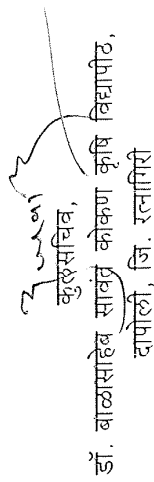 कुलसचिव,
डॉ. बाळासाहेब सावंत कोकण कृषि विद्यापीठ,
दापोली, जि. रत्नागिरी